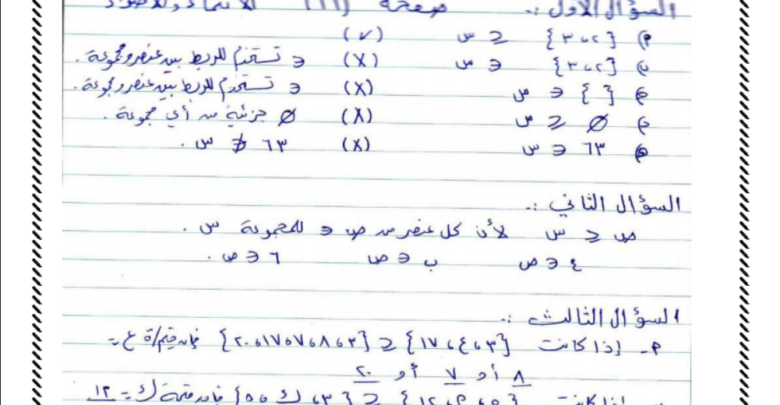 السؤال الأول :. صفحة (١١)
٢) {٣،٢} ⊆ س (✓)
ب) {٣،٢} ∋ س (X) ∋ تستخدم للربط بين عنصر ومجموعة .
ج) { } ∋ ص (X) ∋ تستخدم للربط بين عنصر ومجموعة .
∅ ⊆ ص (X) ∅ جزئية من أي مجموعة .
٦٣ ∋ س (X) ٦٣ ∌ س .
السؤال الثاني :.
ص ⊆ س لأن كل عنصر من ص ∋ للمجموعة س .
٤ ∋ ص ب ∋ ص ٦ ∋ ص .
السؤال الثالث :.
٢- إذا كانت {٣،ع،١٧} ⊆ {٣،٨،٧،١٧،٢٠} فإن قيم/ة ع =
٨ أو ٧ أو ٢٠
إذا كانت ك فإن قيمة ك = ١٢